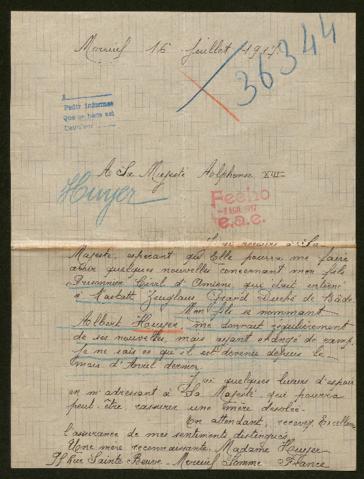 Moreuil 16 Juillet 1917
36344
Pedir informes
que se hace est
Huyer
A Sa Majesté Alphonse XIII
Fecho
1917
e.a.e.
recours à Sa
Majesté, espérant qu'Elle pourra me faire
avoir quelques nouvelles concernant mon fils
Prisonnier Civil d'Amiens, qui était interné
à Rastatt Zeughaus Grand Duché de Bade.
Mon fils se nommant
Albert Huyer, me donnait régulièrement
de ses nouvelles, mais ayant changé de camp,
je ne sais ce qu'il est devenu depuis le
mois d'Avril dernier.
J'ai quelques lueurs d'espoir
en m'adressant à Sa Majesté qui pourra
peut-être rassurer une mère désolée.
En attendant, recevez Excellence
l'assurance de mes sentiments distingués.
Une mère reconnaissante. Madame Huyer
Rue Sainte-Beuve. Moreuil Somme. France